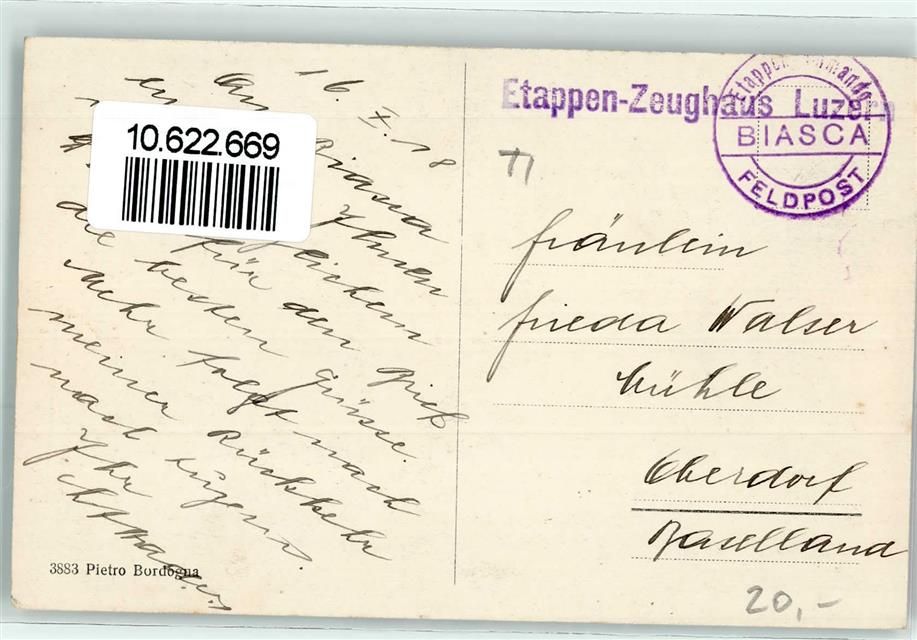 16. X. 18
10.622.669
Biasca
Ihnen
für den Gruss
die besten Grüsse.
Mehr folgt nach
meiner Rückkehr
nach Luzern.
Ihr
3883 Pietro Bordogna
Etappen-Zeughaus Luzern
Etappen-Kommando
BIASCA
FELDPOST
Fräulein
Frieda Walser
Mühle
Oberdorf
Baselland
20,-